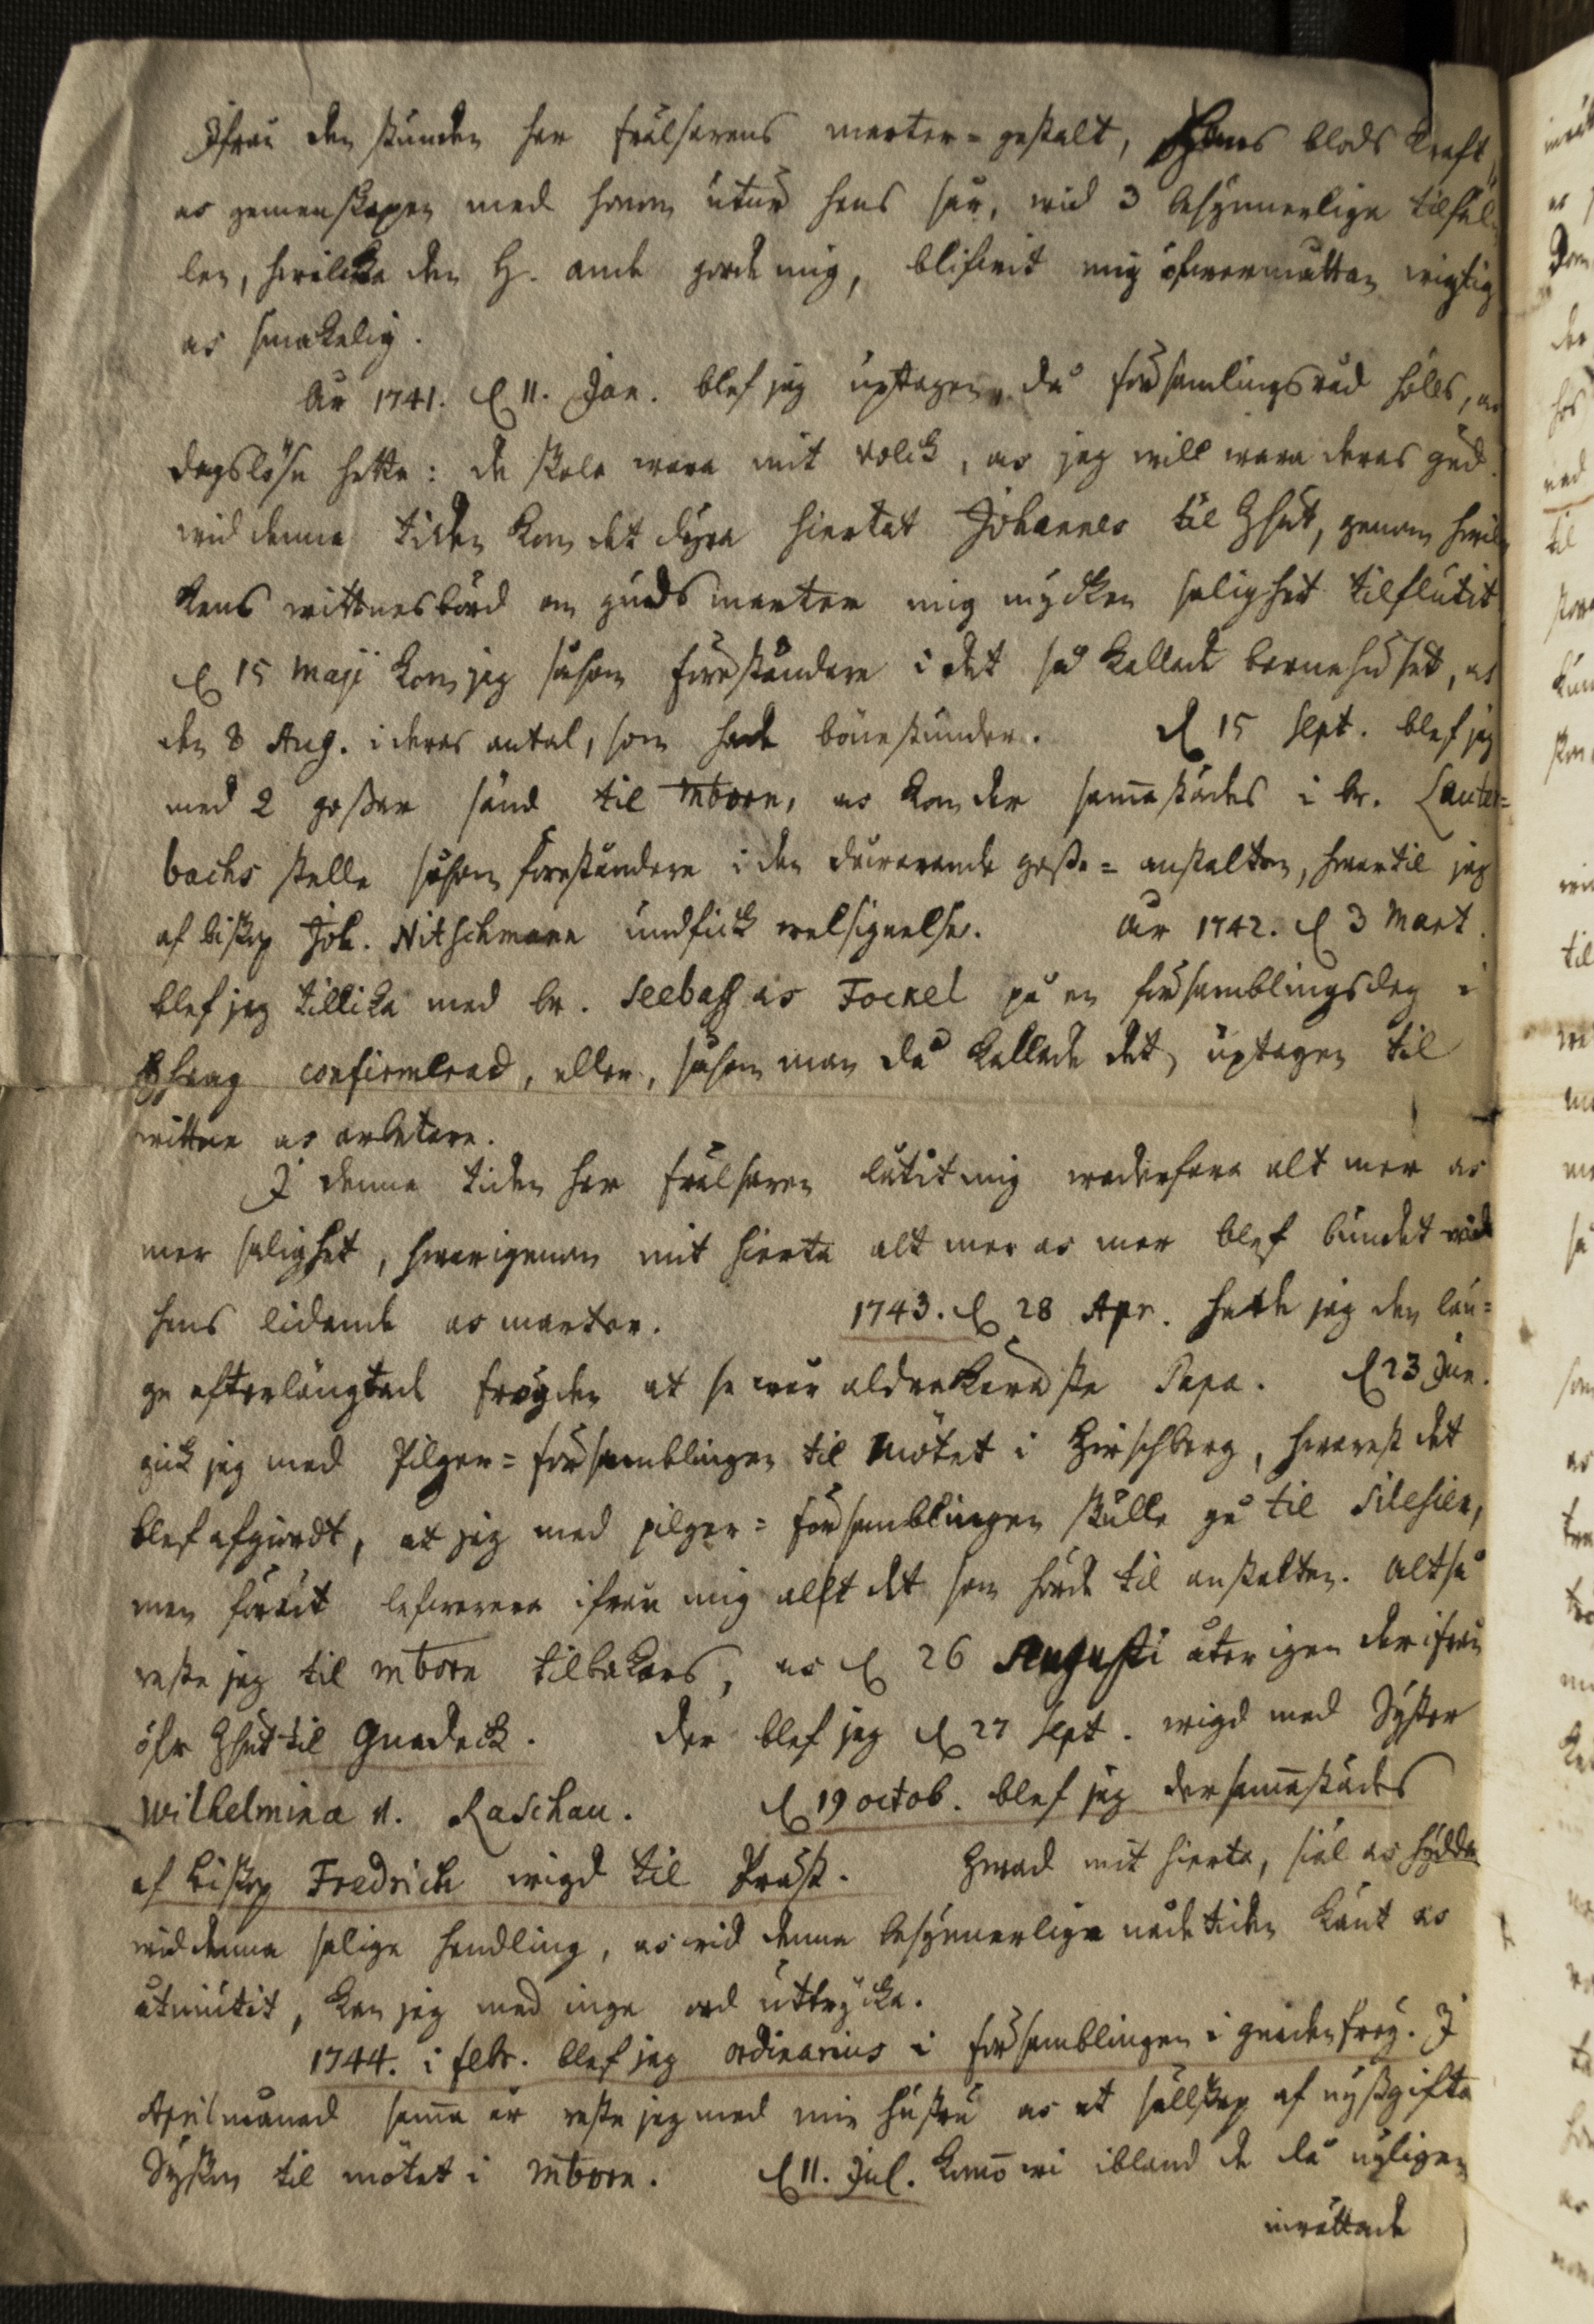 Ifrån den stunden har frälsarens marter=gestalt, Hans blods kraft,
as gemenskapen med honom utur hans sår, wid 3 besynnerliga tilfäl-
len, hwilcka den H. ande gorde mig, blifwit mig öfwermåttan wigtig
as smakelig.
År 1741. d 11. Jan. blef jag uptagen, då församlingsråd hölls, as
dagslösn hette: de skola wara mit volck, as jag will wara deras gud.
wid denna tiden kom det dyra hiertat Johannes til Hhut, genom hwil-
kens wittnesbörd om guds marter mig mycken salighet tilflutit
d 15 Maji kom jag såsom föreståndare i det så kallade barnehuset, as
den 8 Aug. i deras antal, som hade bönestunder. d 15 Sept. blef jag
med 2 gossar sänd til Mborn, as kom der sam̅astädes i br. Lauter=
bachs ställe såsom föreståndare i den dåwarande gosse=anstalten, hwartil jag
af biskop Joh. Nitschmann undfick welsignelse. År 1742. d 3 Mart.
blef jag tillika med br. Seebass as Fockel på en församblingsdag i
Hhaag confirmerad, eller, såsom man då kallade det, uptagen til
wittne as arbetare.
I denna tiden har frälsaren låtit mig wederfara alt mer as
mer salighet, hwarigenom mit hierta alt mer as mer blef bundet wid
hans lidande as marter. 1743. d 28 Apr. hade jag den län=
ge efterlängtade fröyden at se wår aldrakäraste Papa. d 23 Jun.
gick jag med Pilger=församblingen til Mötet i Hirschberg, hwarest det
blef afgiordt, at jag med pilger=församblingen skulle gå til Silesien,
men förut lefwerera ifrån mig allt det som hörde til anstalten. Altså
reste jag til Mborn tilbakars, as d 26 Augusti åter igen derifrån
öfr Hhut til Gnadeck. Der blef jag d 27 Sept. wigd med Syster
Wilhelmina v. Raschau. d 19 octob. blef jag dersam̅astädes
af biskop Fredrich wigd til Präst. Hwad mit hierta, siäl as hydda
wid denna saliga handling, as wid denna besynnerliga nådetiden känt as
åtniutit, kan jag med inga ord uttrycka.
1744. i febr. blef jag ordinarius i församblingen i gnadenfrey. I
April månad sam̅a år reste jag med min hustru as et sällskap af nyssgifta
Syskon til mötet i Mborn. d 11. Jul. kom̅o wi ibland de då nyligen
inrättade